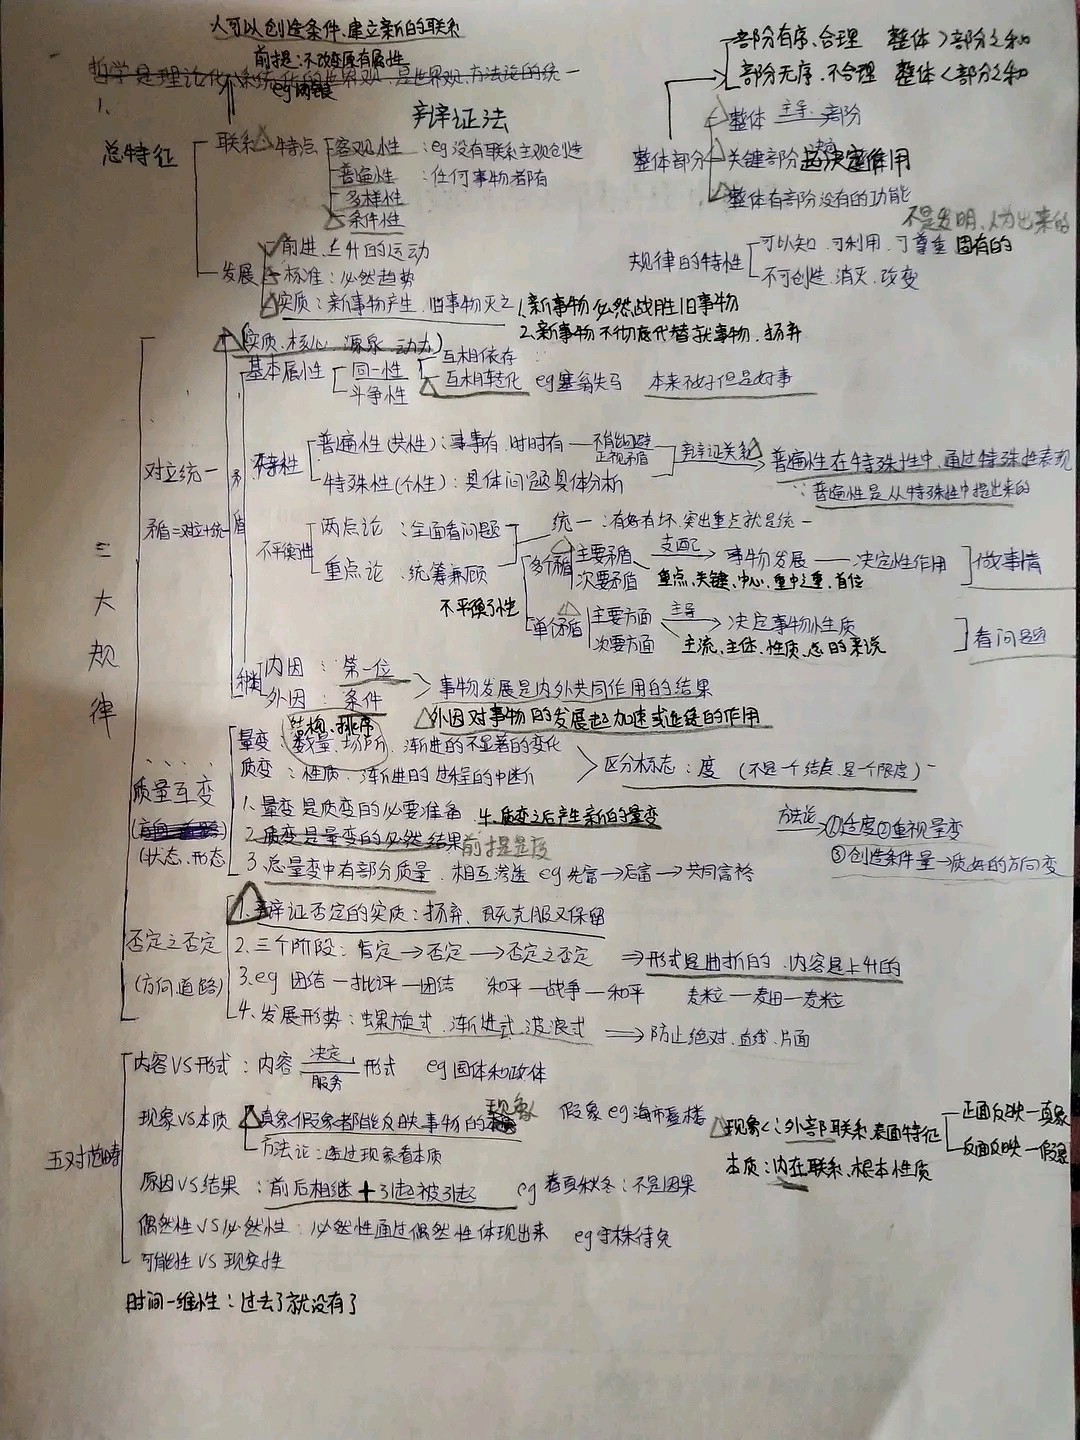 人可以创造条件、建立新的联系
前提:不改变原有属性
哲学是理论化、系统化的世界观,是世界观、方法论的统一
1、
辩证法
部分有序、合理 整体>部分之和
部分无序、不合理 整体<部分之和
整体部分
整体 主导 部分
关键部分 起决定作用
整体有部分没有的功能
总特征
联系 特点
客观性 :eg没有联系主观创造
普遍性 :任何事物都有
多样性
条件性
发展
前进、上升的运动
标准:必然趋势
实质:新事物产生、旧事物灭亡
1.新事物必然战胜旧事物
2.新事物不彻底代替就事物、扬弃
不是发明、人为出来的
规律的特性
可以知、可利用、可尊重 固有的
不可创造、消灭、改变
三大规律
对立统一
矛盾=对立+统一
矛盾
(实质、核心、源泉、动力)
基本属性
同一性
互相依存
互相转化 eg塞翁失马 本来不好但是好事
斗争性
特殊性
普遍性(共性):事事有、时时有 — 不能回避 正视矛盾
特殊性(个性):具体问题具体分析
辩证关系
普遍性在特殊性中、通过特殊性表现
∵普遍性是从特殊性中提出来的
不平衡性
两点论 :全面看问题
重点论 :统筹兼顾
统一:有好有坏、突出重点就是统一
不平衡性
多个矛盾
主要矛盾 支配 事物发展 — 决定性作用
次要矛盾 重点、关键、中心、重中之重、首位
做事情
单个矛盾
主要方面 主导 决定事物性质
次要方面 主流、主体、性质、总的来说
看问题
种类
内因 :第一位
外因 :条件
事物发展是内外共同作用的结果
外因对事物的发展起加速或延缓的作用
质量互变
(状态、形态)
结构、排序
量变:数量、场所、渐进的不显著的变化
质变:性质、渐进的过程的中断
区分标志:度 (不是一个结点,是一个限度)
1.量变是质变的必要准备 4.质变之后产生新的量变
2.质变是量变的必然结果 前提是度
3.总量变中有部分质量、相互渗透 eg先富→后富→共同富裕
方法论→①适度②重视量变
③创造条件量→质好的方向变
否定之否定
(方向道路)
1.辩证否定的实质:扬弃、既克服又保留
2.三个阶段:肯定→否定→否定之否定 ⇒形式是曲折的、内容是上升的
3.eg 团结—批评—团结 和平—战争—和平 麦粒—麦田—麦粒
4.发展形势:螺旋式、渐进式、波浪式 ⇒防止绝对、直线、片面
五对范畴
内容VS形式:内容 决定 服务 形式 eg国体和政体
现象VS本质
真象假象都能反映事物的 现象 假象eg海市蜃楼
方法论:透过现象看本质
现象<:外部联系、表面特征
正面反映—真象
反面反映—假象
本质:内在联系、根本性质
原因VS结果 :前后相继+引起被引起 eg春夏秋冬:不是因果
偶然性VS必然性:必然性通过偶然性体现出来 eg守株待兔
可能性VS现实性
时间一维性:过去了就没有了